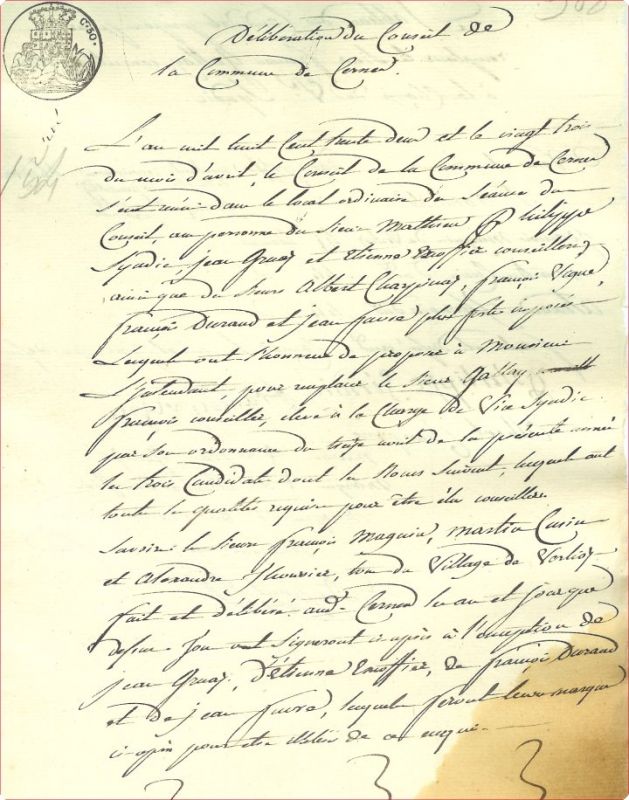 C. 50.
Délibération du Conseil de
la Commune de Cerner.
L'an mil huit cent trente deux et le vingt trois
du mois d'avril, le Conseil de la Commune de Cerner
s'est réuni dans le local ordinaire des séances du
Conseil, aux personnes du Sieur Mathieu Philippe
Syndic, jean Gruaz et Etienne conseillers,
ainsi que des sieurs Albert Charpinaz, françois Vagne,
françois Durand et jean favre plus forts imposés
Lesquels ont l'honneur de proposer à Monsieur
L'jntendant, pour remplacer le sieur Gallay
françois conseiller, élevé à la Charge de Vice Syndic
par son ordonnance du treize avril de la présente année
les trois Candidats dont les Noms suivent, lesquels ont
toutes les qualités requises pour être élu conseillers
Savoir: les Sieurs françois Magnin, martin Cusin
et Alexandre, tous du Village de
fait et délibéré aud. Cerner les an et jour que
dessus. Tous ont Signeront ci après à l'exception de
jean Gruaz, d'Etienne, de françois Durand
et de jean favre, lesquels feront leurs marques
ci après pour être illétérés de ce enquis.